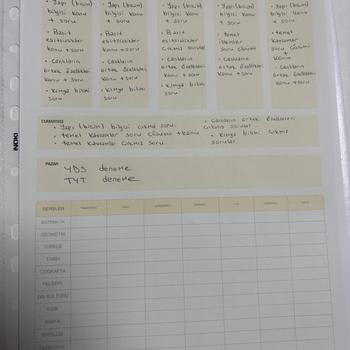 Yapı (bisim) bilgisi konu + soru
• Basit eşitsizlikler konu + soru
• Canlıların ortak özellikleri konu + soru
• Kimya bilimi soru
Yapı (bisim) bilgisi konu + soru
• Basit eşitsizlikler konu + soru
• Canlıların ortak özellikleri konu + soru
• Kimya bilimi soru
bilgisi konu + soru
• Basit eşitsizlikler çıkmış sorular
• Canlıların ortak özellikleri konu + soru
• Kimya bilimi soru
bilgisi konu + soru
• Temel kavramlar soru çözümü
• Canlıların ortak özellikleri konu + soru
bilgisi konu + soru
• temel kavramlar soru çözümü + konu
• Canlıların ortak özellikleri konu + soru
CUMARTESİ
• Yapı (bisim) bilgisi çıkmış soru
• temel kavramlar soru çözümü + konu
• temel kavramlar çıkmış soru
• Canlıların ortak özellikleri çıkmış sorular
• Kimya bilimi çıkmış sorular
PAZAR
YDS deneme
TYT deneme
DERSLER
PAZARTESİ
SALI
ÇARŞAMBA
MATEMATİK
GEOMETRİ
TÜRKÇE
TARİH
COĞRAFYA
FELSEFE
DİN KÜLTÜRÜ
FİZİK
KİMYA
BİYOLOJİ
NOKI